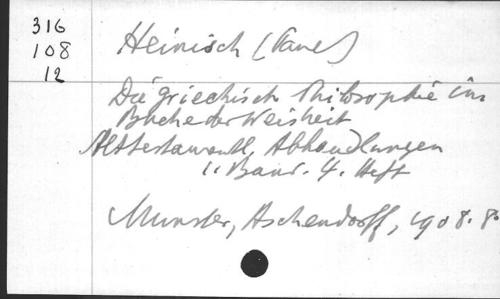 316
108
12
Heinisch (Paul)
Die griechisch Philosophie im
Buche der Weisheit
Alttestamentl. Abhandlungen
1. Band. 4. Heft
Munster, Aschendorff, 1908. 8°